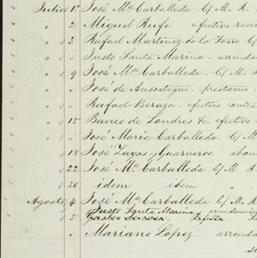 Julio 1º José Mª Carballeda C/ M. R.
" 2 Miguel Rufe. efectivo reci
" 3 Rafael Martinez de la Torre C/
" " Justo Santa Marina - arrenda
" 9 José Mª Carballeda. C/ M.
" " José de Ansoategui - prestamo
" " Rafael Beraza. efectivo contra
" 15 Banco de Londres &ª efectivo
" " José Maria Carballeda C/ M.
" 18 José Zayas Guarneros
" 22 José Mª Carballeda C/ M. R.
" 30 idem idem "
Agosto 4 José Mª Carballeda C/ M. R.
" 5 Justo Santa Marina, arrendamien
" " Mariano Lopez - arrenda